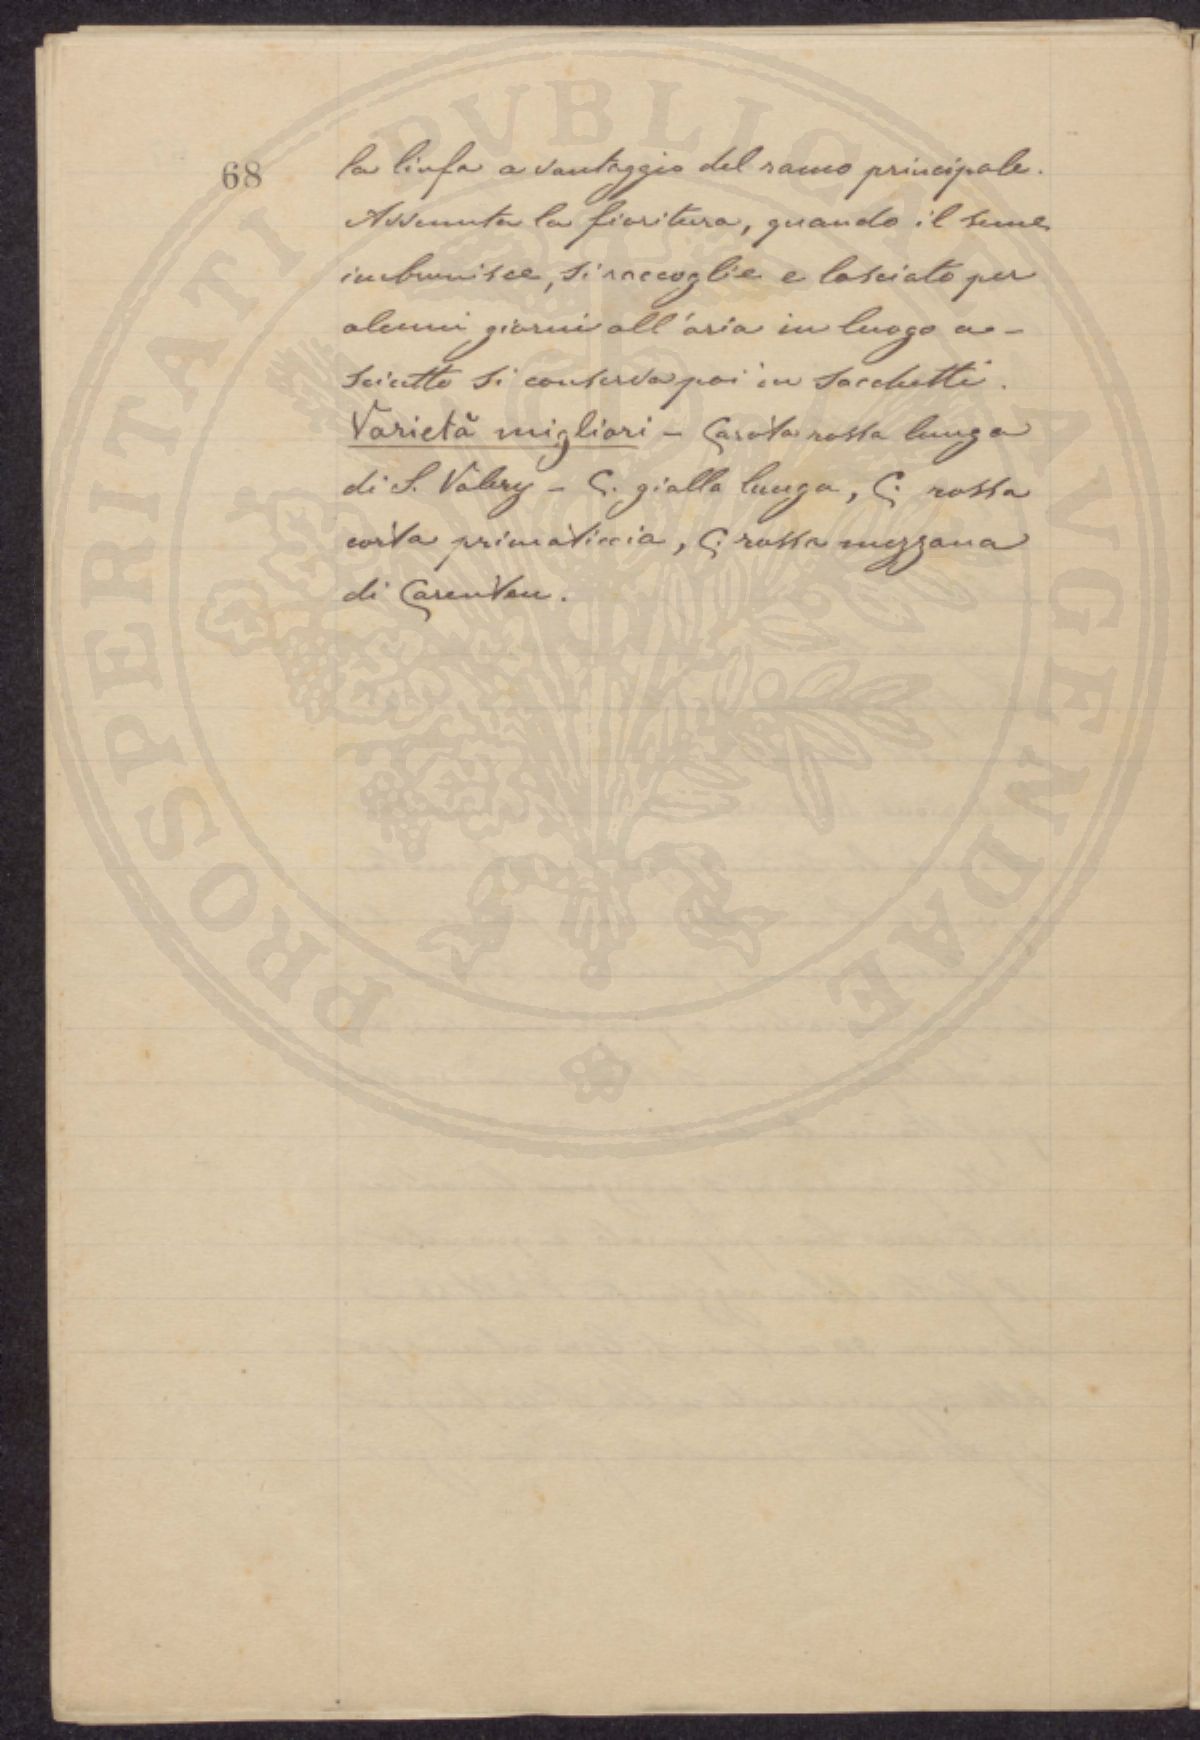 PROSPERITATI PVBLICAE AVGENDAE
68
la linfa a vantaggio del ramo principale.
Avvenuta la fioritura, quando il seme
imbrunisce, si raccoglie e lasciato per
alcuni giorni all'aria in luogo a-
sciutto si conserva poi in sacchetti.
Varietà migliori - Carota rossa lunga
di S. Valery - C. gialla lunga, C. rossa
corta primaticcia, C. rossa mezzana
di Carentan.